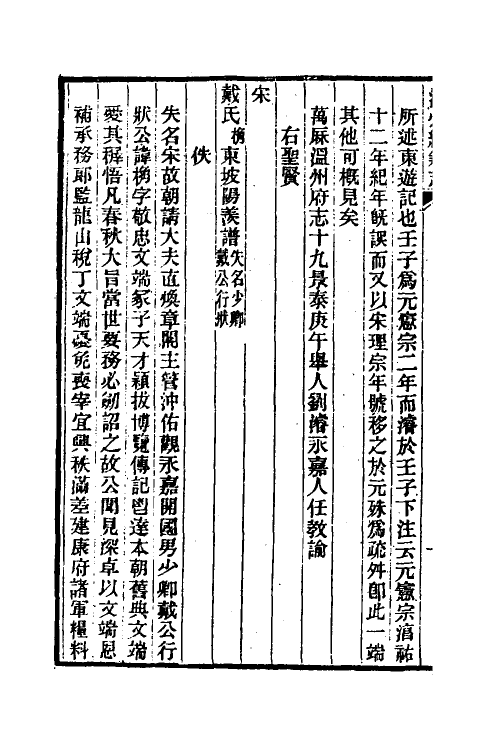 所述東遊記也壬子爲元憲宗二年而濬於壬子下注云元憲宗淯祐
十二年紀年旣誤而又以宋理宗年號移之於元殊爲疏舛卽此一端
其他可概見矣
萬厤溫州府志十九景泰庚午舉人劉濬永嘉人任教諭
右聖賢
宋
戴氏桷東坡陽羨譜失名少卿戴公行狀
佚
失名宋故朝請大夫直煥章閣主管沖佑觀永嘉開國男少卿戴公行
狀公諱桷字敬忠文端冢子天才穎拔博覽傳記曾達本朝舊典文端
愛其穉悟凡春秋大旨當世要務必劬詔之故公聞見深卓以文端恩
補承務郎監龍山稅丁文端憂免喪宰宜興秩滿差建康府諸軍糧料